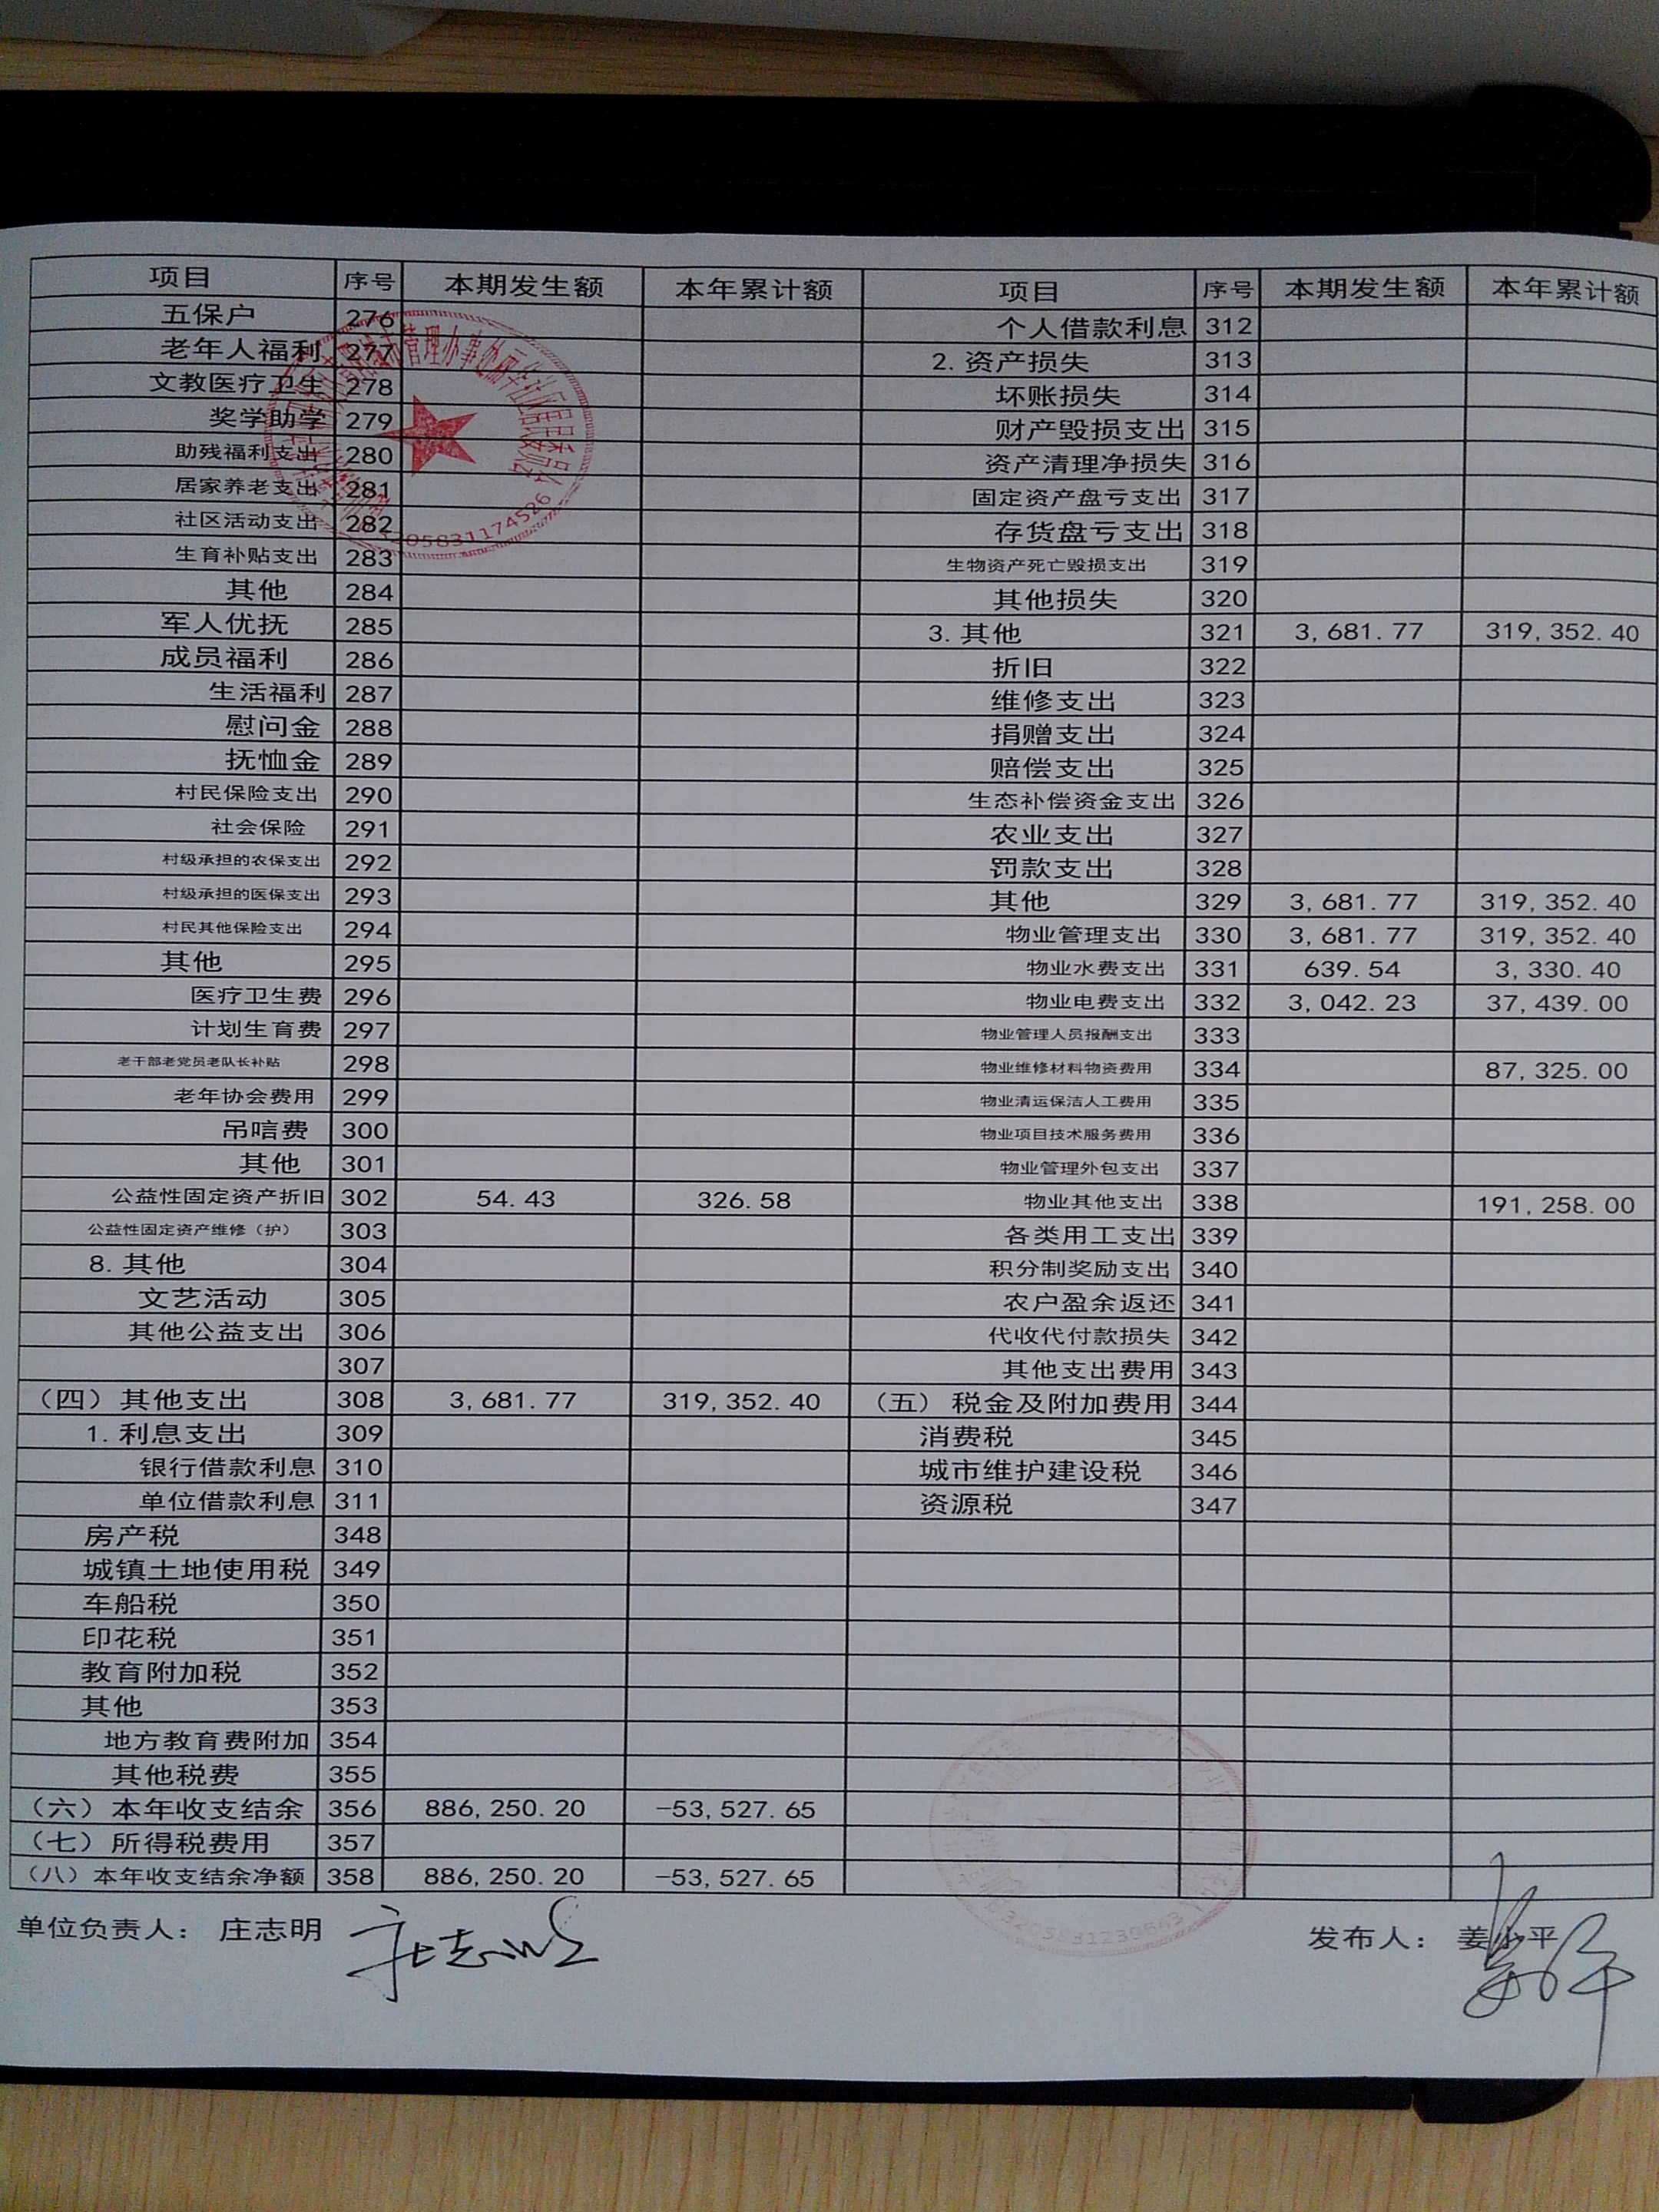 项目 序号 本期发生额 本年累计额 项目 序号 本期发生额 本年累计额
五保户 276 个人借款利息 312
老年人福利 277 2. 资产损失 313
文教医疗卫生 278 坏账损失 314
奖学助学 279 财产毁损支出 315
助残福利支出 280 资产清理净损失 316
居家养老支出 281 固定资产盘亏支出 317
社区活动支出 282 存货盘亏支出 318
生育补贴支出 283 生物资产死亡毁损支出 319
其他 284 其他损失 320
军人优抚 285 3. 其他 321 3,681.77 319,352.40
成员福利 286 折旧 322
生活福利 287 维修支出 323
慰问金 288 捐赠支出 324
抚恤金 289 赔偿支出 325
村民保险支出 290 生态补偿资金支出 326
社会保险 291 农业支出 327
村级承担的农保支出 292 罚款支出 328
村级承担的医保支出 293 其他 329 3,681.77 319,352.40
村民其他保险支出 294 物业管理支出 330 3,681.77 319,352.40
其他 295 物业水费支出 331 639.54 3,330.40
医疗卫生费 296 物业电费支出 332 3,042.23 37,439.00
计划生育费 297 物业管理人员报酬支出 333
老干部老党员老队长补贴 298 物业维修材料物资费用 334 87,325.00
老年协会费用 299 物业清运保洁人工费用 335
吊唁费 300 物业项目技术服务费用 336
其他 301 物业管理外包支出 337
公益性固定资产折旧 302 54.43 326.58 物业其他支出 338 191,258.00
公益性固定资产维修（护） 303 各类用工支出 339
8. 其他 304 积分制奖励支出 340
文艺活动 305 农户盈余返还 341
其他公益支出 306 代收代付款损失 342
307 其他支出费用 343
（四）其他支出 308 3,681.77 319,352.40 （五）税金及附加费用 344
1. 利息支出 309 消费税 345
银行借款利息 310 城市维护建设税 346
单位借款利息 311 资源税 347
房产税 348
城镇土地使用税 349
车船税 350
印花税 351
教育附加税 352
其他 353
地方教育费附加 354
其他税费 355
（六）本年收支结余 356 886,250.20 -53,527.65
（七）所得税费用 357
（八）本年收支结余净额 358 886,250.20 -53,527.65
单位负责人： 庄志明 庄志明 发布人： 姜小平